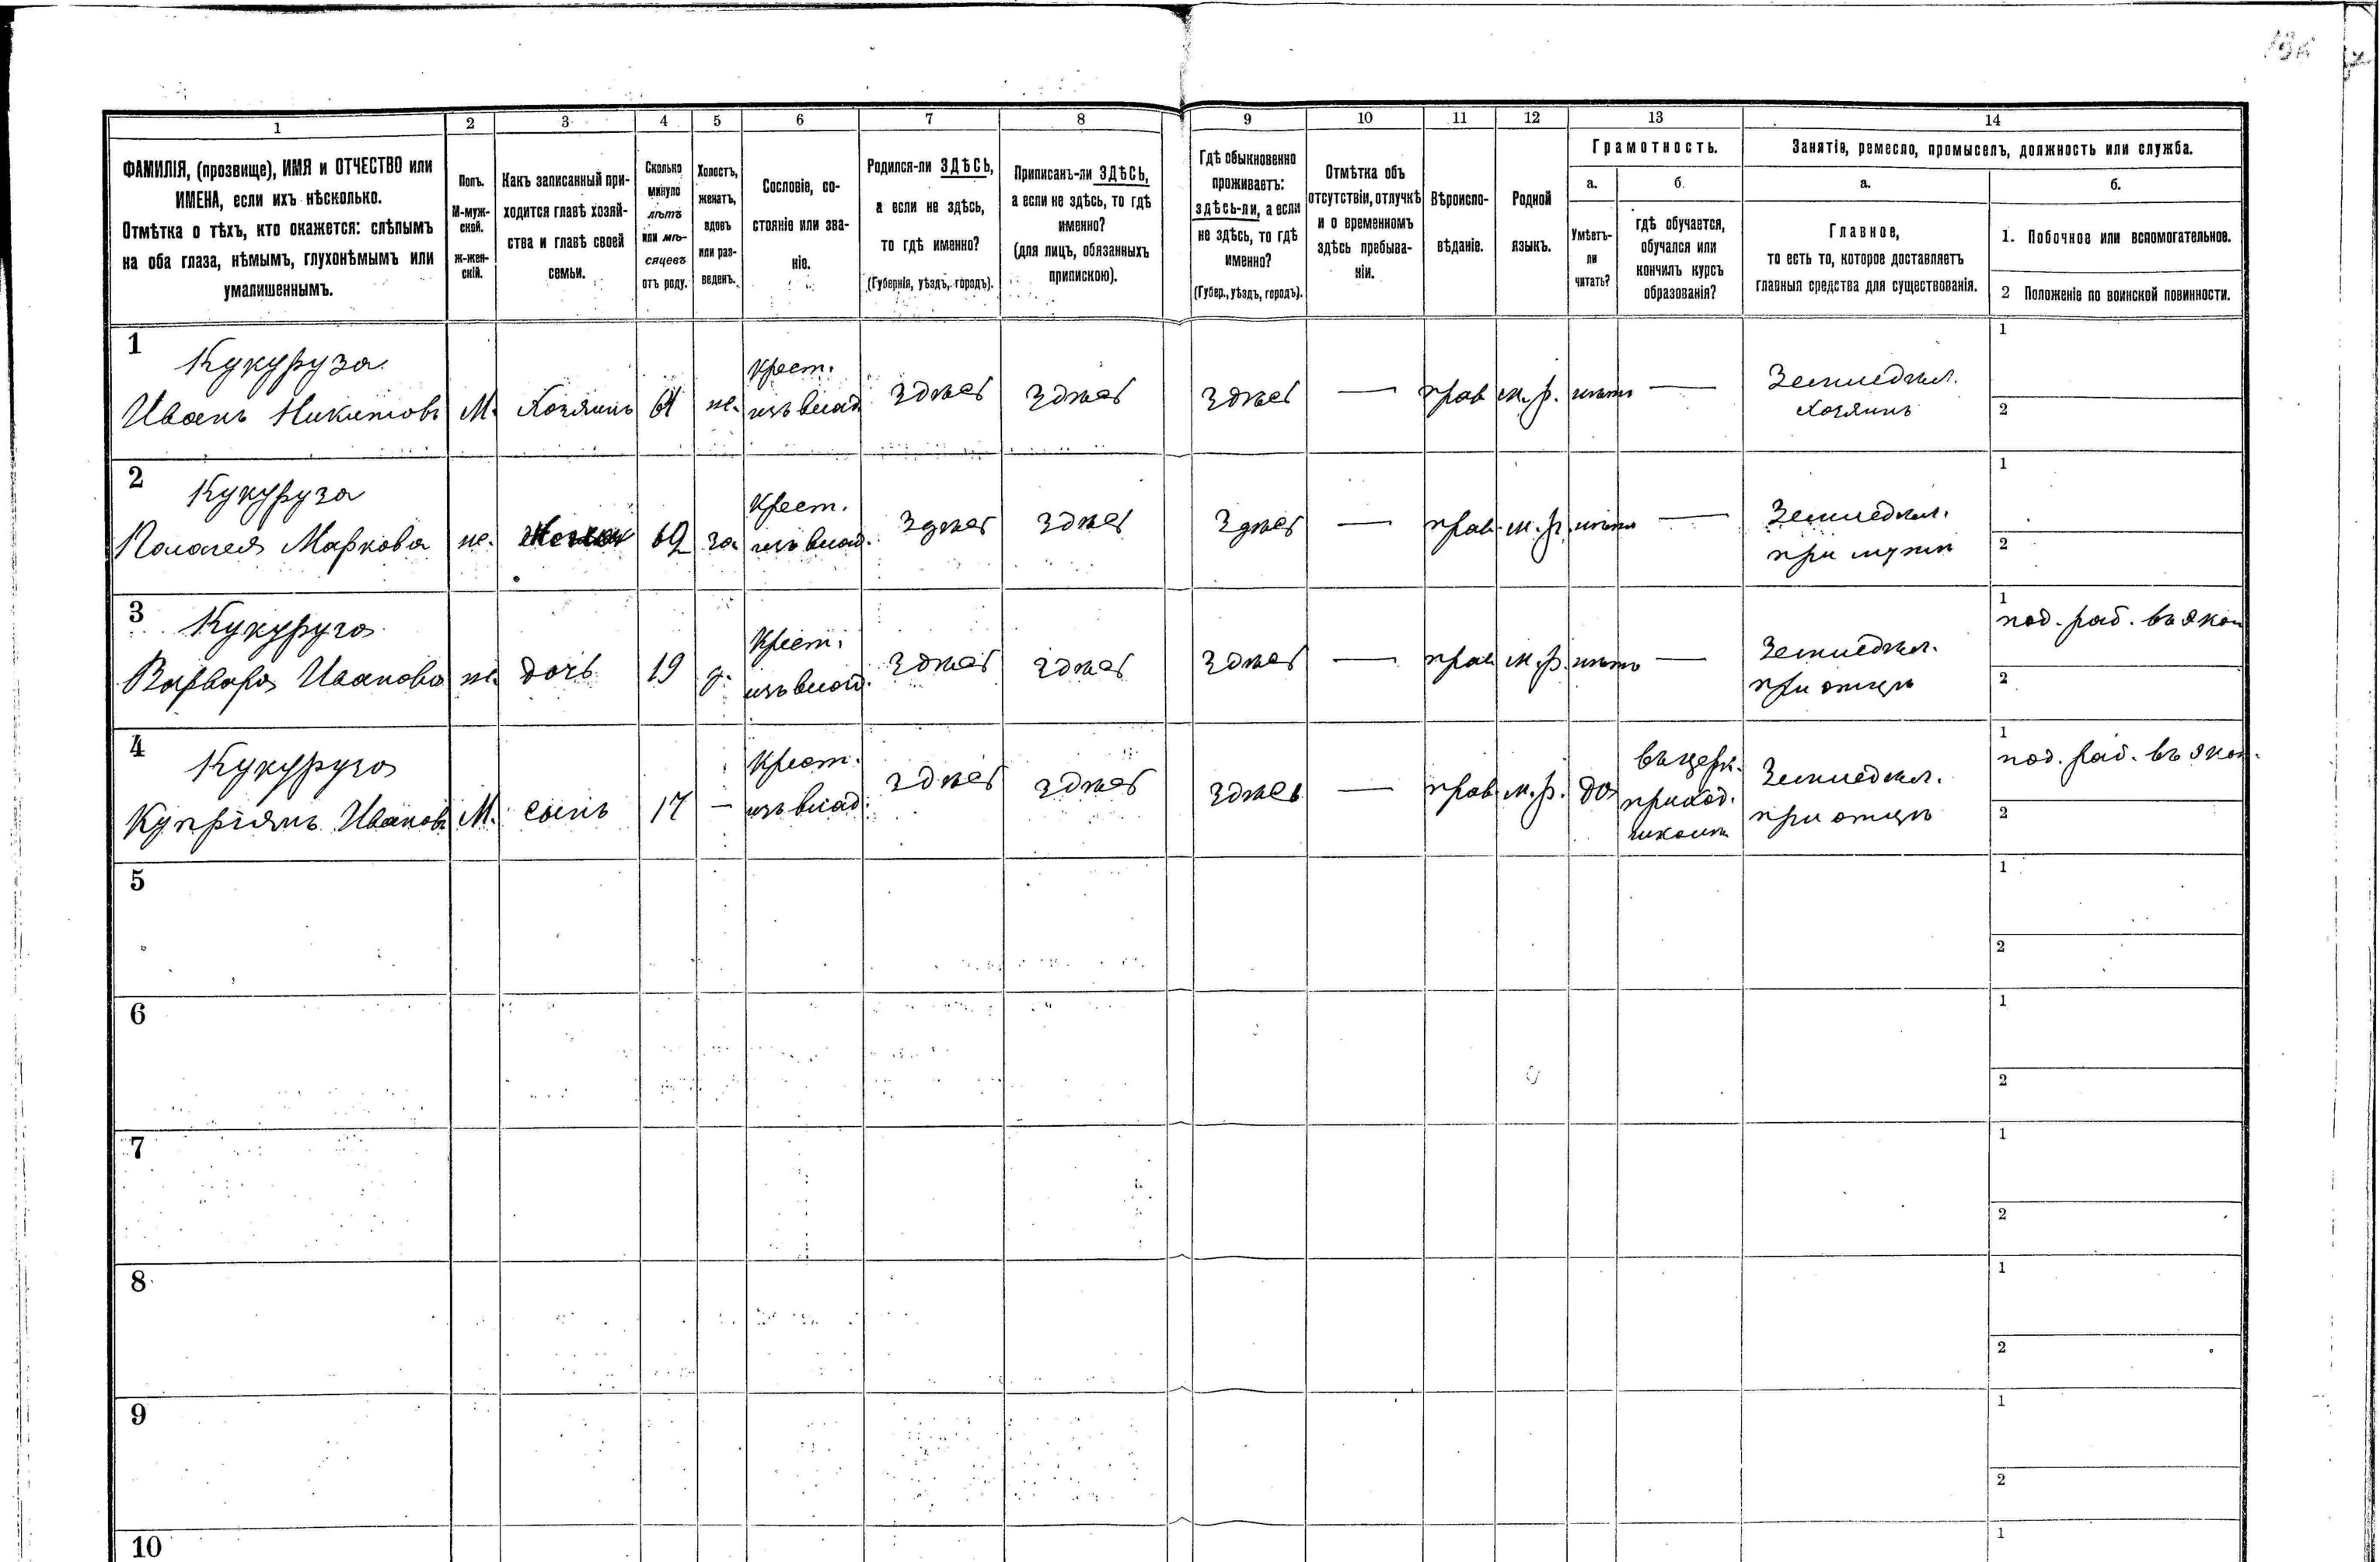 1 2 3 4 5 6 7 8 9 10 11 12 13 14
ФАМИЛІЯ, (прозвище), ИМЯ и ОТЧЕСТВО или
ИМЕНА, если ихъ нѣсколько.
Отмѣтка о тѣхъ, кто окажется: слѣпымъ
на оба глаза, нѣмымъ, глухонѣмымъ или
умалишеннымъ.
Полъ.
М-муж-
ской.
ж-жен-
скій.
Какъ записанный при-
ходится главѣ хозяй-
ства и главѣ своей
семьи.
Сколько
минуло
лѣтъ
или мѣ-
сяцевъ
отъ роду.
Холостъ,
женатъ,
вдовъ
или раз-
веденъ.
Сословіе, со-
стояніе или зва-
ніе.
Родился-ли ЗДѢСЬ,
а если не здѣсь,
то гдѣ именно?
(Губернія, уѣздъ, городъ).
Приписанъ-ли ЗДѢСЬ,
а если не здѣсь, то гдѣ
именно?
(для лицъ, обязанныхъ
припискою).
Гдѣ обыкновенно
проживаетъ:
здѣсь-ли, а если
не здѣсь, то гдѣ
именно?
(Губер., уѣздъ, городъ).
Отмѣтка объ
отсутствіи, отлучкѣ
и о временномъ
здѣсь пребыва-
ніи.
Вѣроиспо-
вѣданіе.
Родной
языкъ.
Грамотность.
а.
Умѣетъ-
ли
читать?
б.
гдѣ обучается,
обучался или
кончилъ курсъ
образованія?
Занятіе, ремесло, промыселъ, должность или служба.
а.
Главное,
то есть то, которое доставляетъ
главныя средства для существованія.
б.
1. Побочное или вспомогательное.
2 Положеніе по воинской повинности.
1
Кукуруза
Иванъ Никитовъ
М.
Хозяинъ
61
же.
крест.
изъ влад.
здѣсь
здѣсь
здѣсь
—
прав
м. р.
нѣтъ
—
Земледѣл.
хозяинъ
1
2
2
Кукуруза
Палагея Маркова
же.
Жена
62
за
крест.
изъ влад.
здѣсь
здѣсь
здѣсь
—
прав.
м. р.
нѣтъ
—
Земледѣл.
при мужѣ
1
2
3
Кукуруза
Варвара Иванова
же.
дочь
19
д.
крест.
изъ влад.
здѣсь
здѣсь
здѣсь
—
прав
м. р.
нѣтъ
—
Земледѣл.
при отцѣ
1
под. раб. въ экон
2
4
Кукуруза
Купріянъ Ивановъ
М.
сынъ
17
—
крест.
изъ влад.
здѣсь
здѣсь
здѣсь
—
прав
м. р.
да
въ церк.
приход.
школѣ
Земледѣл.
при отцѣ
1
под. раб. въ экон.
2
5
1
2
6
1
2
7
1
2
8
1
2
9
1
2
10
1